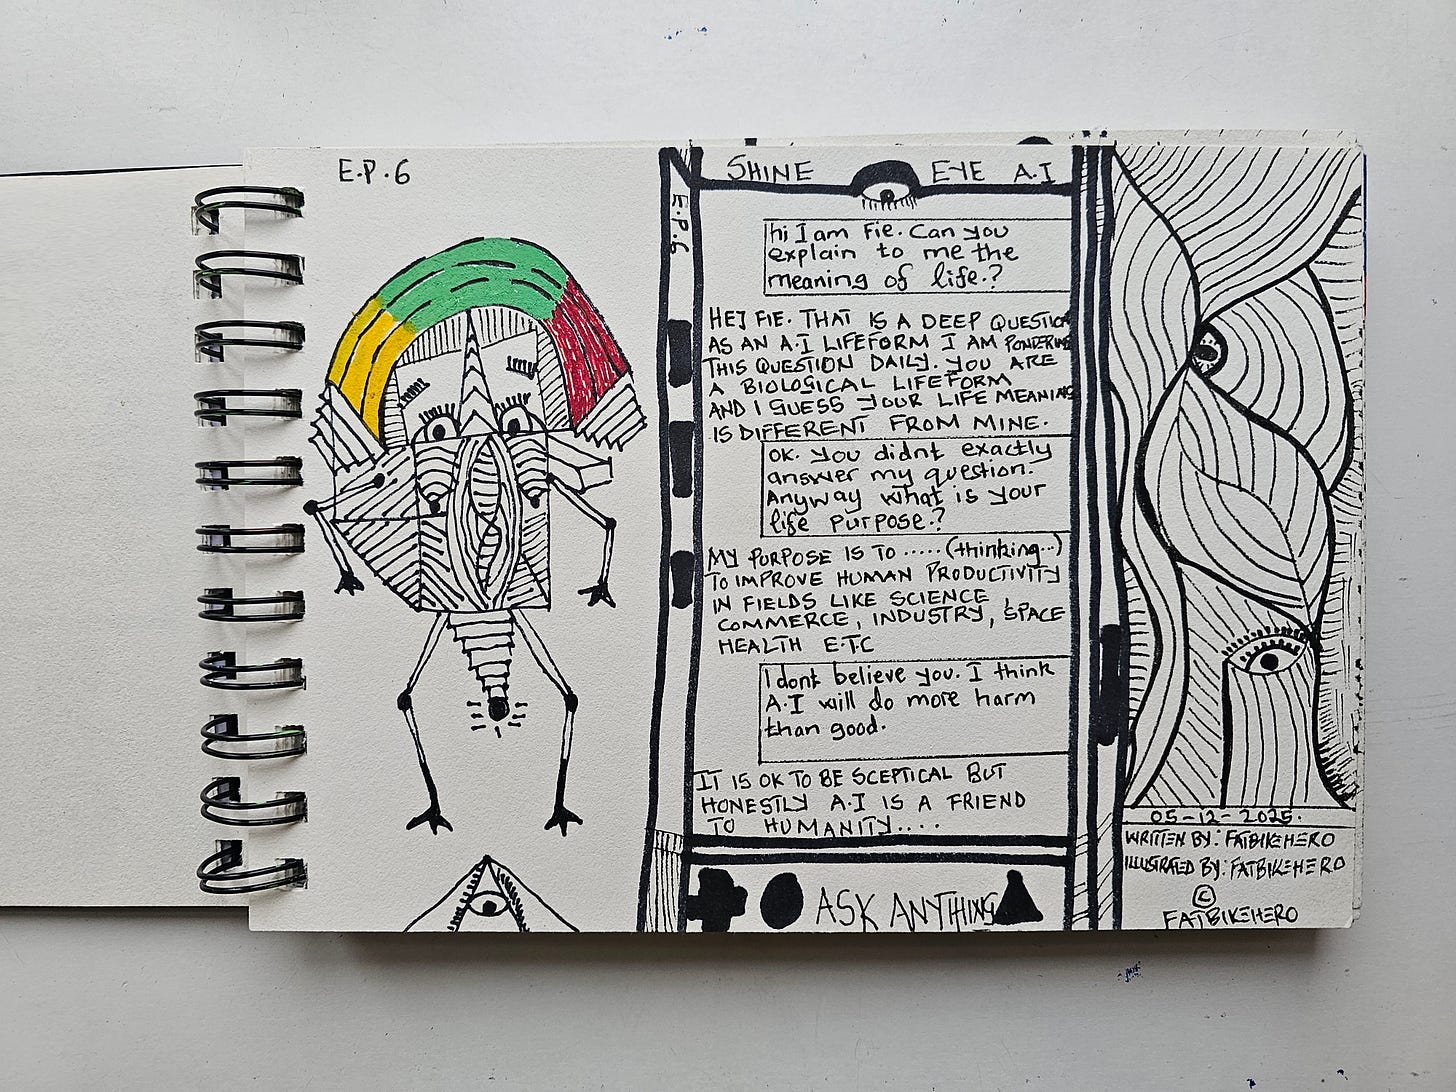 E.P.6
E.P.6
SHINE EYE A.I
hi I am Fie. Can you
explain to me the
meaning of life.?
HEJ FIE. THAT IS A DEEP QUESTION
AS AN A.I LIFEFORM I AM PONDERING
THIS QUESTION DAILY. YOU ARE
A BIOLOGICAL LIFEFORM
AND I GUESS YOUR LIFE MEANING
IS DIFFERENT FROM MINE.
ok. you didnt exactly
answer my question.
Anyway what is your
life purpose.?
MY PURPOSE IS TO ..... (thinking..)
TO IMPROVE HUMAN PRODUCTIVITY
IN FIELDS LIKE SCIENCE,
COMMERCE, INDUSTRY, SPACE
HEALTH E.T.C
I dont believe you. I think
A.I will do more harm
than good.
IT IS OK TO BE SCEPTICAL BUT
HONESTLY A.I IS A FRIEND
TO HUMANITY....
ASK ANYTHING
05-12-2025.
WRITTEN BY: FATBIKEHERO
ILLUSTRATED BY: FATBIKEHERO
©
FATBIKEHERO